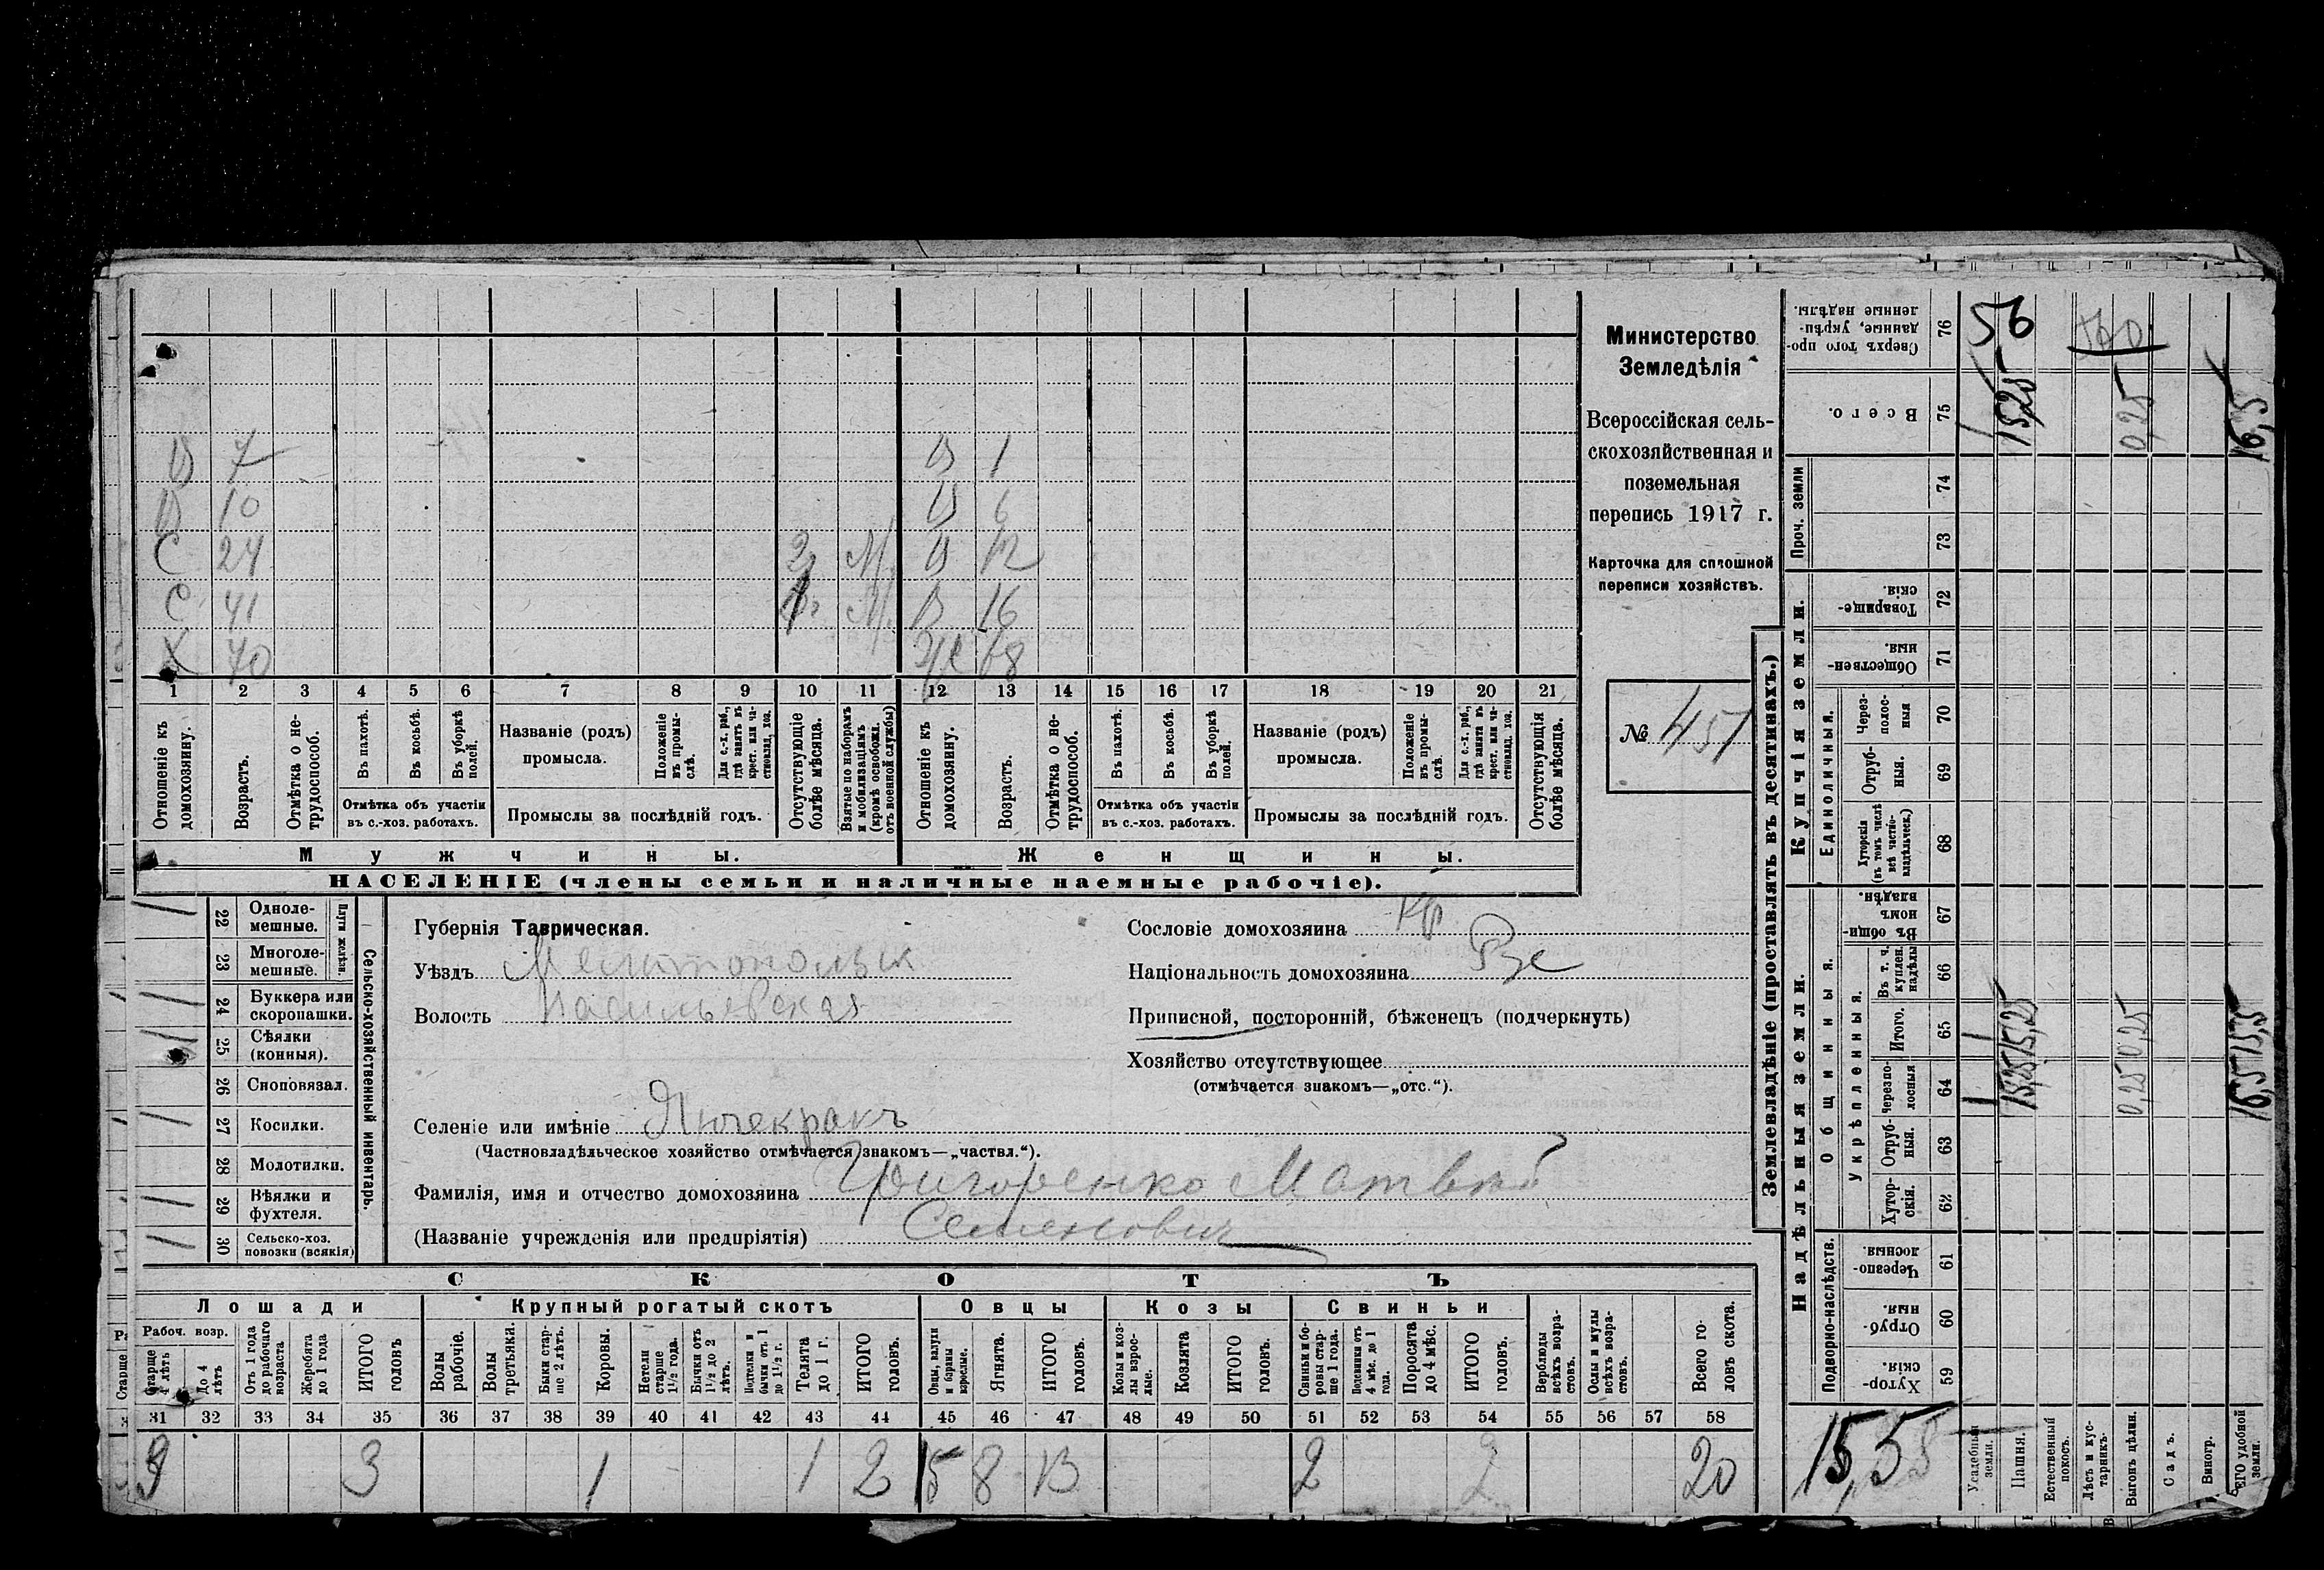 В 7 В 1
В 10 В 6
С 24 М. В 12
С 41 М. В 16
Х 70 Ж 68
1 2 3 4 5 6 7 8 9 10 11 12 13 14 15 16 17 18 19 20 21
Отношеніе къ домохозяину.
Возрастъ.
Отмѣтка о не-
трудоспособ.
Въ пахотѣ.
Въ косьбѣ.
Въ уборкѣ
полей.
Отмѣтка объ участіи
въ с.-хоз. работахъ.
Названіе (родъ)
промысла.
Положеніе
въ промы-
слѣ.
Для с.-х. раб.,
гдѣ занятъ въ
крест. или ча-
стновлад. хоз.
Промыслы за послѣдній годъ.
Отсутствующіе
болѣе мѣсяца.
Взятые по наборамъ
и мобилизаціямъ
(кромѣ освобожд.
отъ военной службы)
Отношеніе къ
домохозяину.
Возрастъ.
Отмѣтка о не-
трудоспособ.
Въ пахотѣ.
Въ косьбѣ.
Въ уборкѣ
полей.
Отмѣтка объ участіи
въ с.-хоз. работахъ.
Названіе (родъ)
промысла.
Положеніе
въ промы-
слѣ.
Для с.-х. раб.,
гдѣ занята въ
крест. или ча-
стновлад. хоз.
Промыслы за послѣдній годъ.
Отсутствующія
болѣе мѣсяца.
Мужчины.
Женщины.
НАСЕЛЕНІЕ (члены семьи и наличные наемные рабочіе).
Министерство
Земледѣлія
Всероссійская сель-
скохозяйственная и
поземельная
перепись 1917 г.
Карточка для сплошной
переписи хозяйствъ.
№ 451
22 Одноле-
мешные.
23 Многоле-
мешные.
Плуги желѣзн.
24 Буккера или
скоропашки.
25 Сѣялки
(конныя).
26 Сноповязал.
27 Косилки.
28 Молотилки.
29 Вѣялки и
фухтеля.
30 Сельско-хоз.
повозки (всякія)
Сельско-хозяйственный инвентарь.
Губернія Таврическая.
Уѣздъ Мелитопольск
Волость Васильевская
Селеніе или имѣніе Янчекракъ
(Частновладѣльческое хозяйство отмѣчается знакомъ—„частвл.“).
Фамилія, имя и отчество домохозяина Григоренко Матвѣй
Семенович
(Названіе учрежденія или предпріятія)
Сословіе домохозяина кр
Національность домохозяина Рус
Приписной, посторонній, бѣженецъ (подчеркнуть)
Хозяйство отсутствующее
(отмѣчается знакомъ—„отс.“).
СКОТЪ
Лошади
Крупный рогатый скотъ
Овцы
Козы
Свиньи
Рабоч. возр.
Старше
4 лѣтъ
До 4
лѣтъ
Отъ 1 года
до рабочаго
возраста
Жеребята
до 1 года
ИТОГО
головъ
Волы
рабочіе.
Волы
третьяки.
Быки стар-
ше 2 лѣтъ.
Коровы.
Нетели
старше
1½ года.
Бычки отъ
1½ до 2
лѣтъ.
Подтелки и
бычки отъ 1
до 1½ г.
Телята
до 1 г.
ИТОГО
головъ.
Овцы, валухи
и бараны
взрослые.
Ягнята.
ИТОГО
головъ.
Козы и коз-
лы взрос-
лые.
Козлята
ИТОГО
головъ.
Свиньи и бо-
ровы стар-
ше 1 года.
Подсвинки отъ
4 мѣс. до 1
года.
Поросята
до 4 мѣс.
ИТОГО
головъ.
Верблюды
всѣхъ возра-
стовъ.
Ослы и мулы
всѣхъ возра-
стовъ.
Всего го-
ловъ скота.
31 32 33 34 35 36 37 38 39 40 41 42 43 44 45 46 47 48 49 50 51 52 53 54 55 56 57 58
3 3 1 1 2 5 8 13 2 2 20
Землевладѣніе (проставлять въ десятинахъ.)
Надѣльныя земли.
Купчія земли.
Проч. земли
Подворно-наслѣдств.
Общинныя.
Укрѣпленныя.
Единоличныя.
Сверхъ того про-
данные, укрѣп-
ленные надѣлы.
76
Всего.
75
74
73
Товарище-
скія.
72
Обществен-
ныя.
71
Через-
полос-
ныя
70
Отруб-
ныя.
69
Хуторскія
(въ томъ числѣ
всѣ частно-
владѣльческ.)
68
Въ общин-
номъ
владѣн.
67
Въ т. ч.
куплен.
надѣлы
66
Итого.
65
Черезпо-
лосныя
64
Отруб-
ныя.
63
Хутор-
скія.
62
Черезпо-
лосныя
61
Отруб-
ныя.
60
Хутор-
скія.
59
Усадебныя
земли.
Пашня.
Естественный
покосъ.
Лѣсъ и кус-
тарникъ.
Выгонъ цѣлин.
Садъ.
Виногр.
ЕГО удобной
земли.
56
15,25
0,25
16,5
1 1
15,25 15,25
0,25 0,25